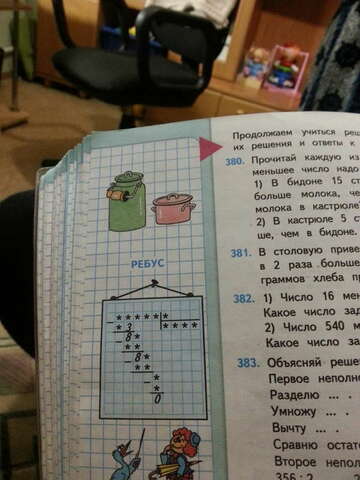 РЕБУС
* * * * * *
* 3 * * * *
8 *
* *
8 *
* *
*
*
0
Продолжаем учиться реш
их решения и ответы к
380. Прочитай каждую из
меньшее число надо
1) В бидоне 15 ст
больше молока, че
молока в кастрюле?
2) В кастрюле 5 с
ше, чем в бидоне.
381. В столовую приве
в 2 раза больше
граммов хлеба пр
382. 1) Число 16 мен
Какое число зад
2) Число 540 м
Какое число за
383. Объясняй реше
Первое неполн
Разделю ... .
Умножу ... .
Вычту ... .
Сравню остато
Второе непол
356 : 2